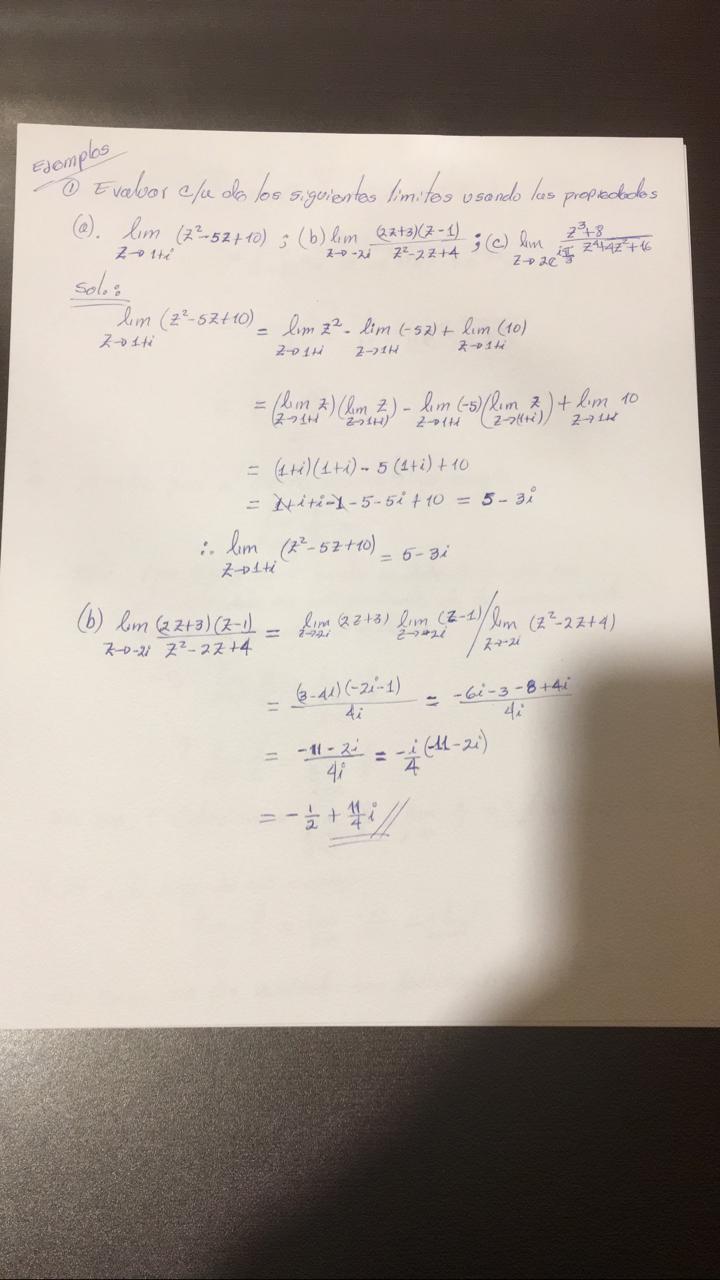 Ejemplos
① Evaluar c/u de los siguientes límites usando las propiedades
(a). lim_{z→1+i} (z²-5z+10) ; (b) lim_{z→-2i} (2z+3)(z-1)/(z²-2z+4) ; (c) lim_{z→2e^{iπ/3}} (z³+8)/(z⁴+4z²+16)
Sol.:
lim_{z→1+i} (z²-5z+10) = lim_{z→1+i} z² - lim_{z→1+i} (-5z) + lim_{z→1+i} (10)
= (lim_{z→1+i} z)(lim_{z→1+i} z) - lim_{z→1+i} (-5)(lim_{z→(1+i)} z) + lim_{z→1+i} 10
= (1+i)(1+i) - 5(1+i) + 10
= 1+i+i-1-5-5i+10 = 5-3i
∴ lim_{z→1+i} (z²-5z+10) = 5-3i
(b) lim_{z→-2i} (2z+3)(z-1)/(z²-2z+4) = lim_{z→-2i} (2z+3) lim_{z→-2i} (z-1) / lim_{z→-2i} (z²-2z+4)
= (3-4i)(-2i-1)/4i = (-6i-3-8+4i)/4i
= (-11-2i)/4i = -i/4 (-11-2i)
= -1/2 + 11/4 i //